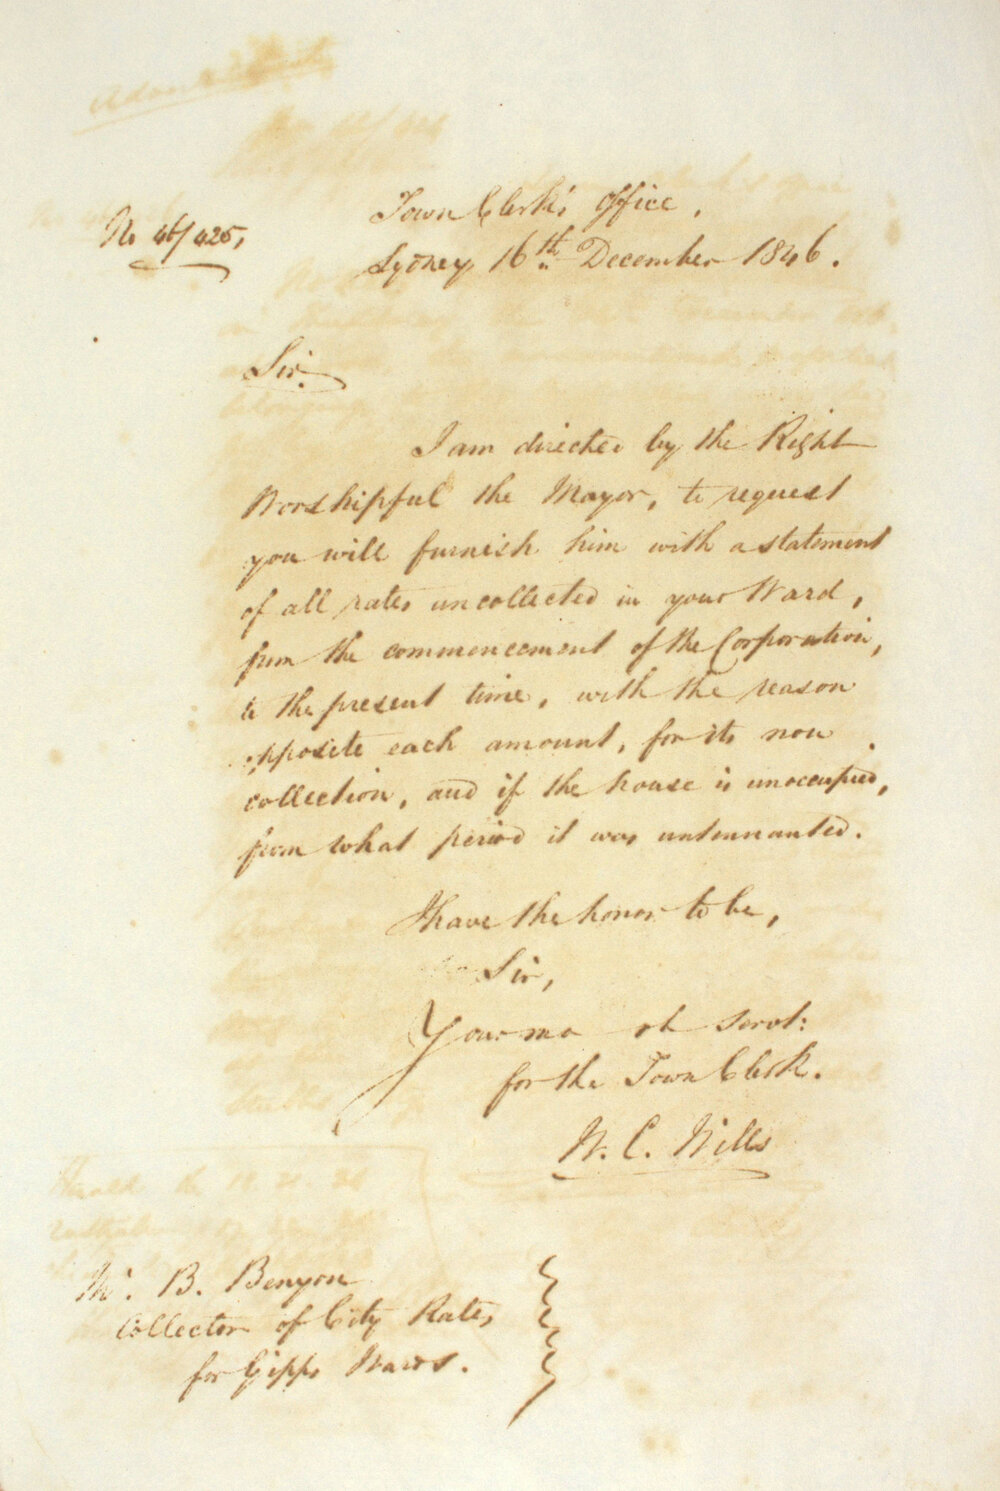 No 46/425,
Town Clerk's Office,
Sydney 16th December 1846.
Sir.
I am directed by the Right
Worshipful the Mayor, to request
you will furnish him with a statement
of all rates uncollected in your Ward,
from the commencement of the Corporation,
to the present time, with the reason
opposite each amount, for its non
collection, and if the house is unoccupied,
from what period it was untennanted.
I have the honor to be,
Sir,
Your mo ob servt:
for the Town Clerk.
W. C. Wills
Mr. B. Benyon
Collector of City Rates
for Gipps Ward.